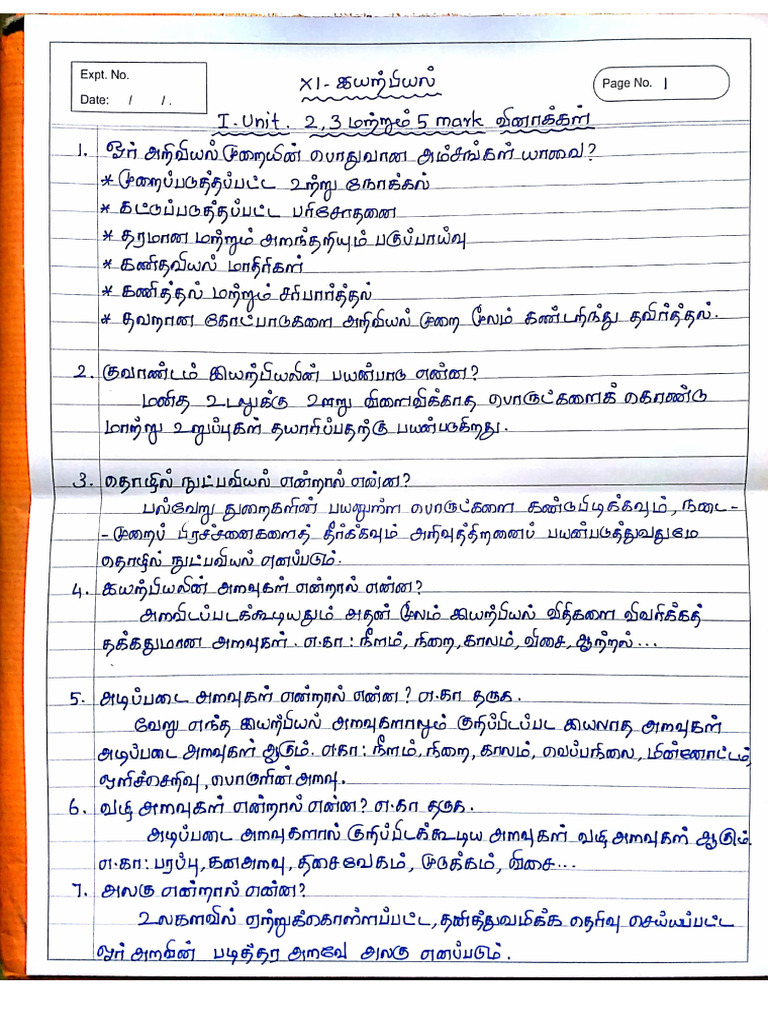 Expt. No.
Date: / / .
XI - இயற்பியல்
Page No. 1
I. Unit. 2, 3 மற்றும் 5 mark வினாக்கள்
1. ஓர் அறிவியல் முறையின் பொதுவான அம்சங்கள் யாவை?
* முறைப்படுத்தப்பட்ட உற்று நோக்கல்
* கட்டுப்படுத்தப்பட்ட பரிசோதனை
* தரமான மற்றும் அளந்தறியும் பகுப்பாய்வு
* கணிதவியல் மாதிரிகள்
* கணித்தல் மற்றும் சரிபார்த்தல்
* தவறான கோட்பாடுகளை அறிவியல் முறை மூலம் கண்டறிந்து தவிர்த்தல்.
2. குவாண்டம் இயற்பியலின் பயன்பாடு என்ன?
மனித உடலுக்கு ஊறு விளைவிக்காத பொருட்களைக் கொண்டு
மாற்று உறுப்புகள் தயாரிப்பதற்கு பயன்படுகிறது.
3. தொழில் நுட்பவியல் என்றால் என்ன?
பல்வேறு துறைகளின் பயனுள்ள பொருட்களை கண்டுபிடிக்கவும், நடை-
-முறைப் பிரச்சனைகளைத் தீர்க்கவும் அறிவுத்திறனைப் பயன்படுத்துவதுமே
தொழில் நுட்பவியல் எனப்படும்.
4. இயற்பியலின் அளவுகள் என்றால் என்ன?
அளவிடப்படக்கூடியதும் அதன் மூலம் இயற்பியல் விதிகளை விவரிக்கத்
தக்கதுமான அளவுகள். எ.கா: நீளம், நிறை, காலம், விசை, ஆற்றல்...
5. அடிப்படை அளவுகள் என்றால் என்ன? எ.கா தருக.
வேறு எந்த இயற்பியல் அளவுகளாலும் குறிப்பிடப்பட இயலாத அளவுகள்
அடிப்படை அளவுகள் ஆகும். எ.கா: நீளம், நிறை, காலம், வெப்பநிலை, மின்னோட்டம்,
ஒளிச்செறிவு, பொருளின் அளவு.
6. வழி அளவுகள் என்றால் என்ன? எ.கா தருக.
அடிப்படை அளவுகளால் குறிப்பிடக்கூடிய அளவுகள் வழி அளவுகள் ஆகும்.
எ.கா: பரப்பு, கனஅளவு, திசைவேகம், முடுக்கம், விசை...
7. அலகு என்றால் என்ன?
உலகளவில் ஏற்றுக்கொள்ளப்பட்ட, தனித்துவமிக்க தெரிவு செய்யப்பட்ட
ஓர் அளவின் படித்தர அளவே அலகு எனப்படும்.